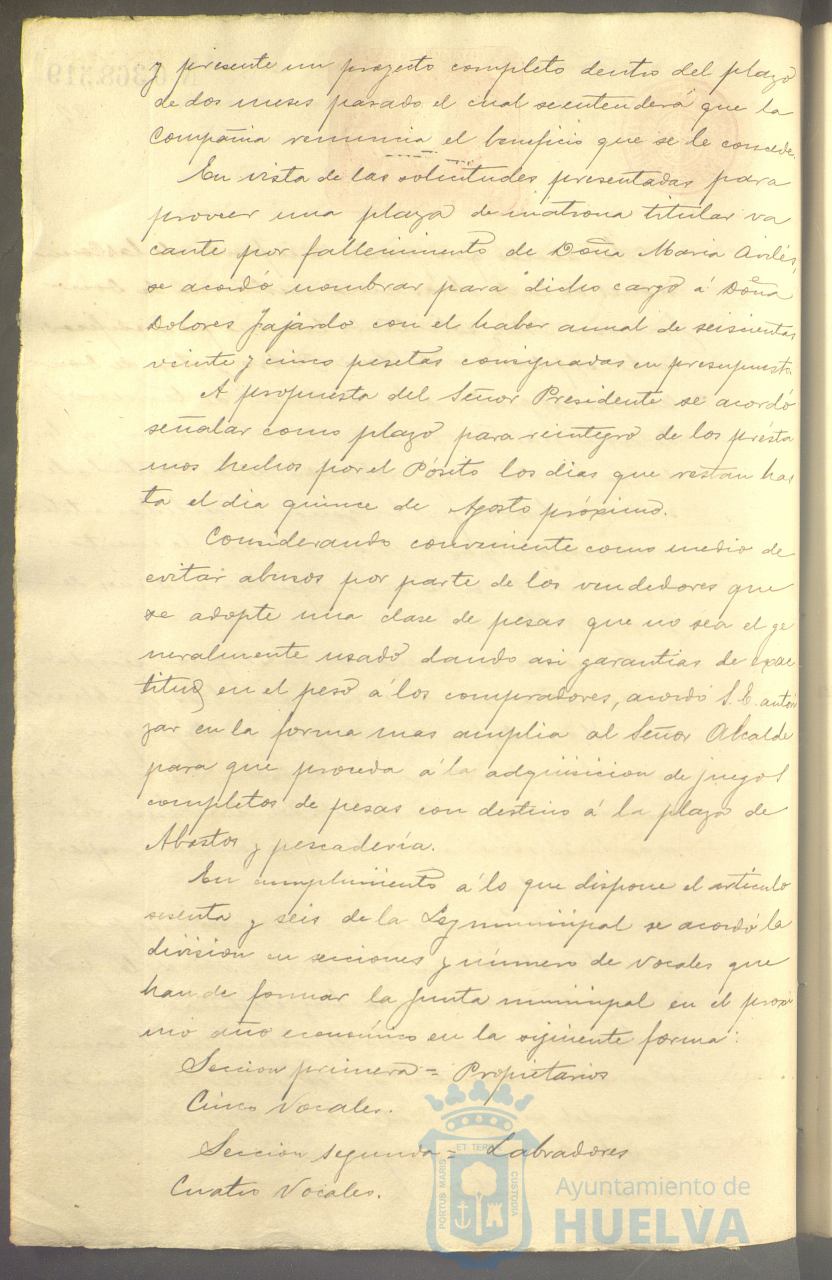 y presente un proyecto completo dentro del plazo
de dos meses pasado el cual se entenderá que la
Compañia renuncia el beneficio que se le concede.
En vista de las solicitudes presentadas para
proveer una plaza de matrona titular va
cante por fallecimiento de Doña Maria Avilés,
se acordó nombrar para dicho cargo á Doña
Dolores Fajardo con el haber anual de seiscientas
veinte y cinco pesetas consignadas en presupuesto.
A propuesta del Señor Presidente se acordó
señalar como plazo para reintegro de los présta
mos hechos por el Pósito los dias que restan has
ta el dia quince de Agosto próximo.
Considerando conveniente como medio de
evitar abusos por parte de los vendedores que
se adopte una clase de pesas que no sea el ge
neralmente usado dando asi garantias de exac
titud en el peso á los compradores, acordó S. E. autori
zar en la forma mas amplia al Señor Alcalde
para que proceda á la adquisicion de juegos
completos de pesas con destino á la plaza de
Abastos y pescadería.
En cumplimiento á lo que dispone el artículo
sesenta y seis de la Ley municipal se acordó la
division en secciones y número de vocales que
han de formar la Junta municipal en el proxi
mo año económico en la siguiente forma:
Seccion primera = Propietarios
Cinco Vocales.
Seccion segunda = Labradores
Cuatro Vocales.
PORTUS MARIS ET TERRAE CUSTODIA
Ayuntamiento de
HUELVA